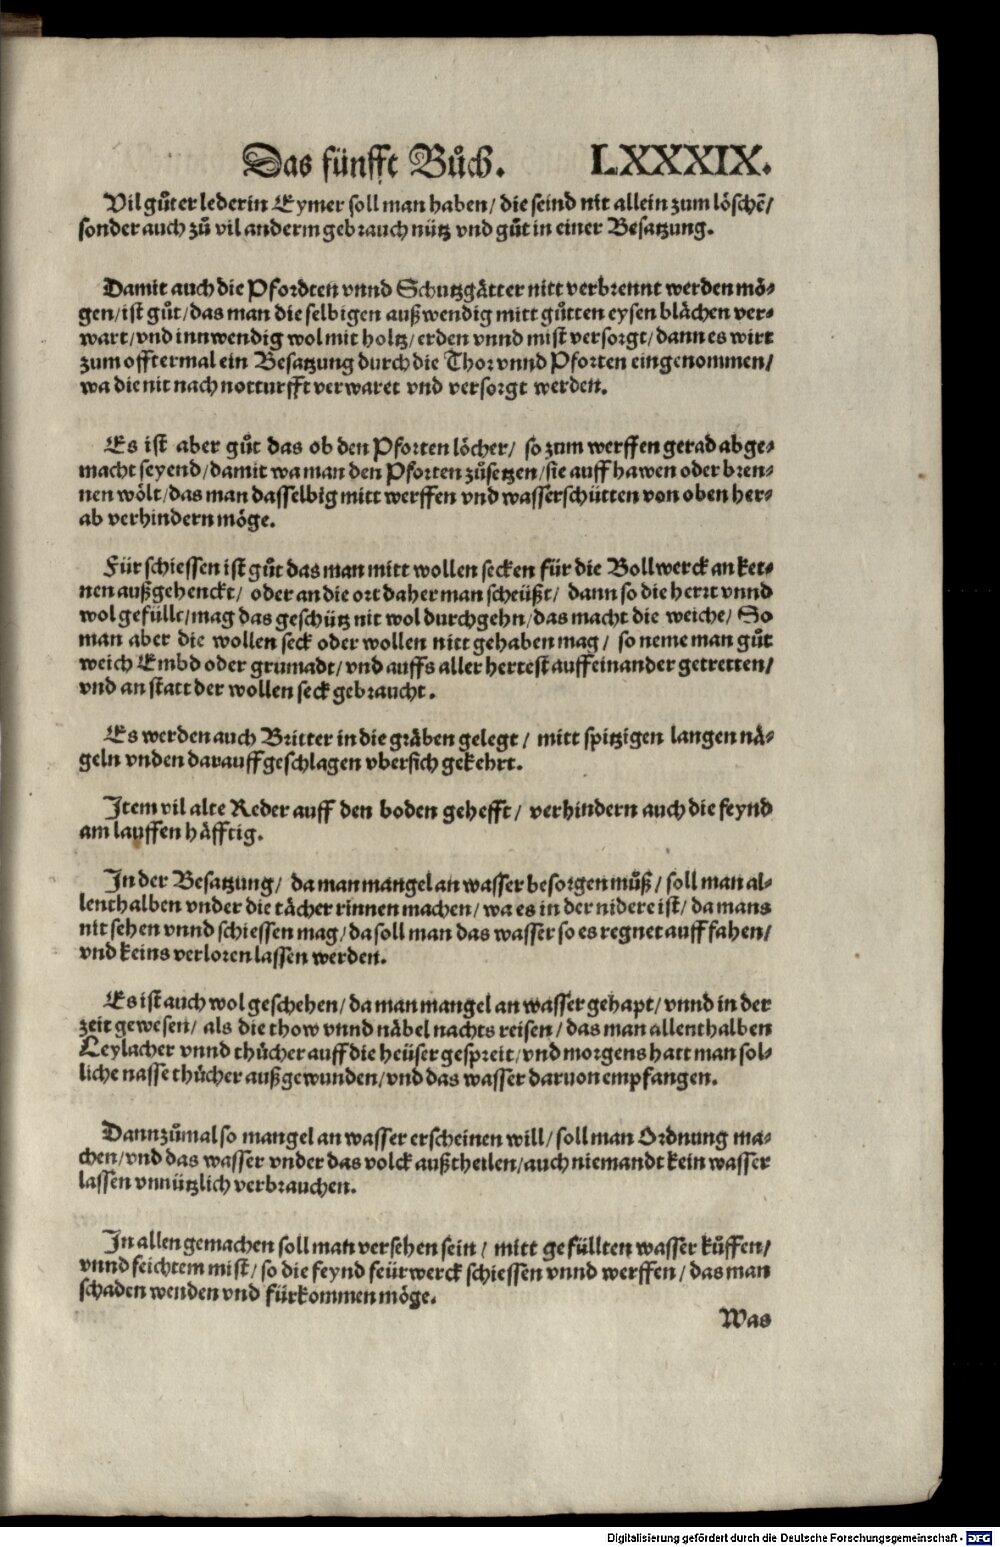 Das fünfft Bůch. LXXXIX.
Vil gůter lederin Eymer soll man haben/ die seind nit allein zum löschē/
sonder auch zů vil anderm gebrauch nütz vnd gůt in einer Besatzung.
Damit auch die Pfordten vnnd Schutzgätter nitt verbrennt werden mö-
gen/ ist gůt/ das man die selbigen außwendig mitt gůtten eysen blächen ver-
wart/ vnd innwendig wol mit holtz/ erden vnnd mist versorgt/ dann es wirt
zum offtermal ein Besatzung durch die Thor vnnd Pforten eingenommen/
wa die nit nach notturfft verwaret vnd versorgt werden.
Es ist aber gůt das ob den Pforten löcher/ so zum werffen gerad abge-
macht seyend/ damit wa man den Pforten zůsetzen/ sie auff hawen oder bren-
nen wölt/ das man dasselbig mitt werffen vnd wasserschütten von oben her-
ab verhindern möge.
Für schiessen ist gůt das man mitt wollen secken für die Bollwerck an ket-
nen außgehenckt/ oder an die ort daher man scheüßt/ dann so die hertt vnnd
wol gefüllt/ mag das geschütz nit wol durchgehn/ das macht die weiche/ So
man aber die wollen seck oder wollen nitt gehaben mag/ so neme man gůt
weich Embd oder grumadt/ vnd auffs aller hertest auffeinander getretten/
vnd an statt der wollen seck gebraucht.
Es werden auch Britter in die gräben gelegt/ mitt spitzigen langen nä-
geln vnden darauff geschlagen vbersich gekehrt.
Item vil alte Reder auff den boden gehefft/ verhindern auch die feynd
am lauffen häfftig.
In der Besatzung/ da man mangel an wasser besorgen můß/ soll man al-
lenthalben vnder die tächer rinnen machen/ wa es in der nidere ist/ da mans
nit sehen vnnd schiessen mag/ da soll man das wasser so es regnet auff fahen/
vnd keins verloren lassen werden.
Es ist auch wol geschehen/ da man mangel an wasser gehapt/ vnnd in der
zeit gewesen/ als die thow vnnd näbel nachts reisen/ das man allenthalben
Leylacher vnnd thücher auff die heüser gespreit/ vnd morgens hatt man sol-
liche nasse thücher außgewunden/ vnd das wasser daruon empfangen.
Dann zůmal so mangel an wasser erscheinen will/ soll man Ordnung ma-
chen/ vnd das wasser vnder das volck außtheilen/ auch niemandt kein wasser
lassen vnnützlich verbrauchen.
In allen gemachen soll man versehen sein/ mitt gefüllten wasser küffen/
vnnd feichtem mist/ so die feynd feürwerck schiessen vnnd werffen/ das man
schaden wenden vnd fürkommen möge.
Was
Digitalisierung gefördert durch die Deutsche Forschungsgemeinschaft - DFG